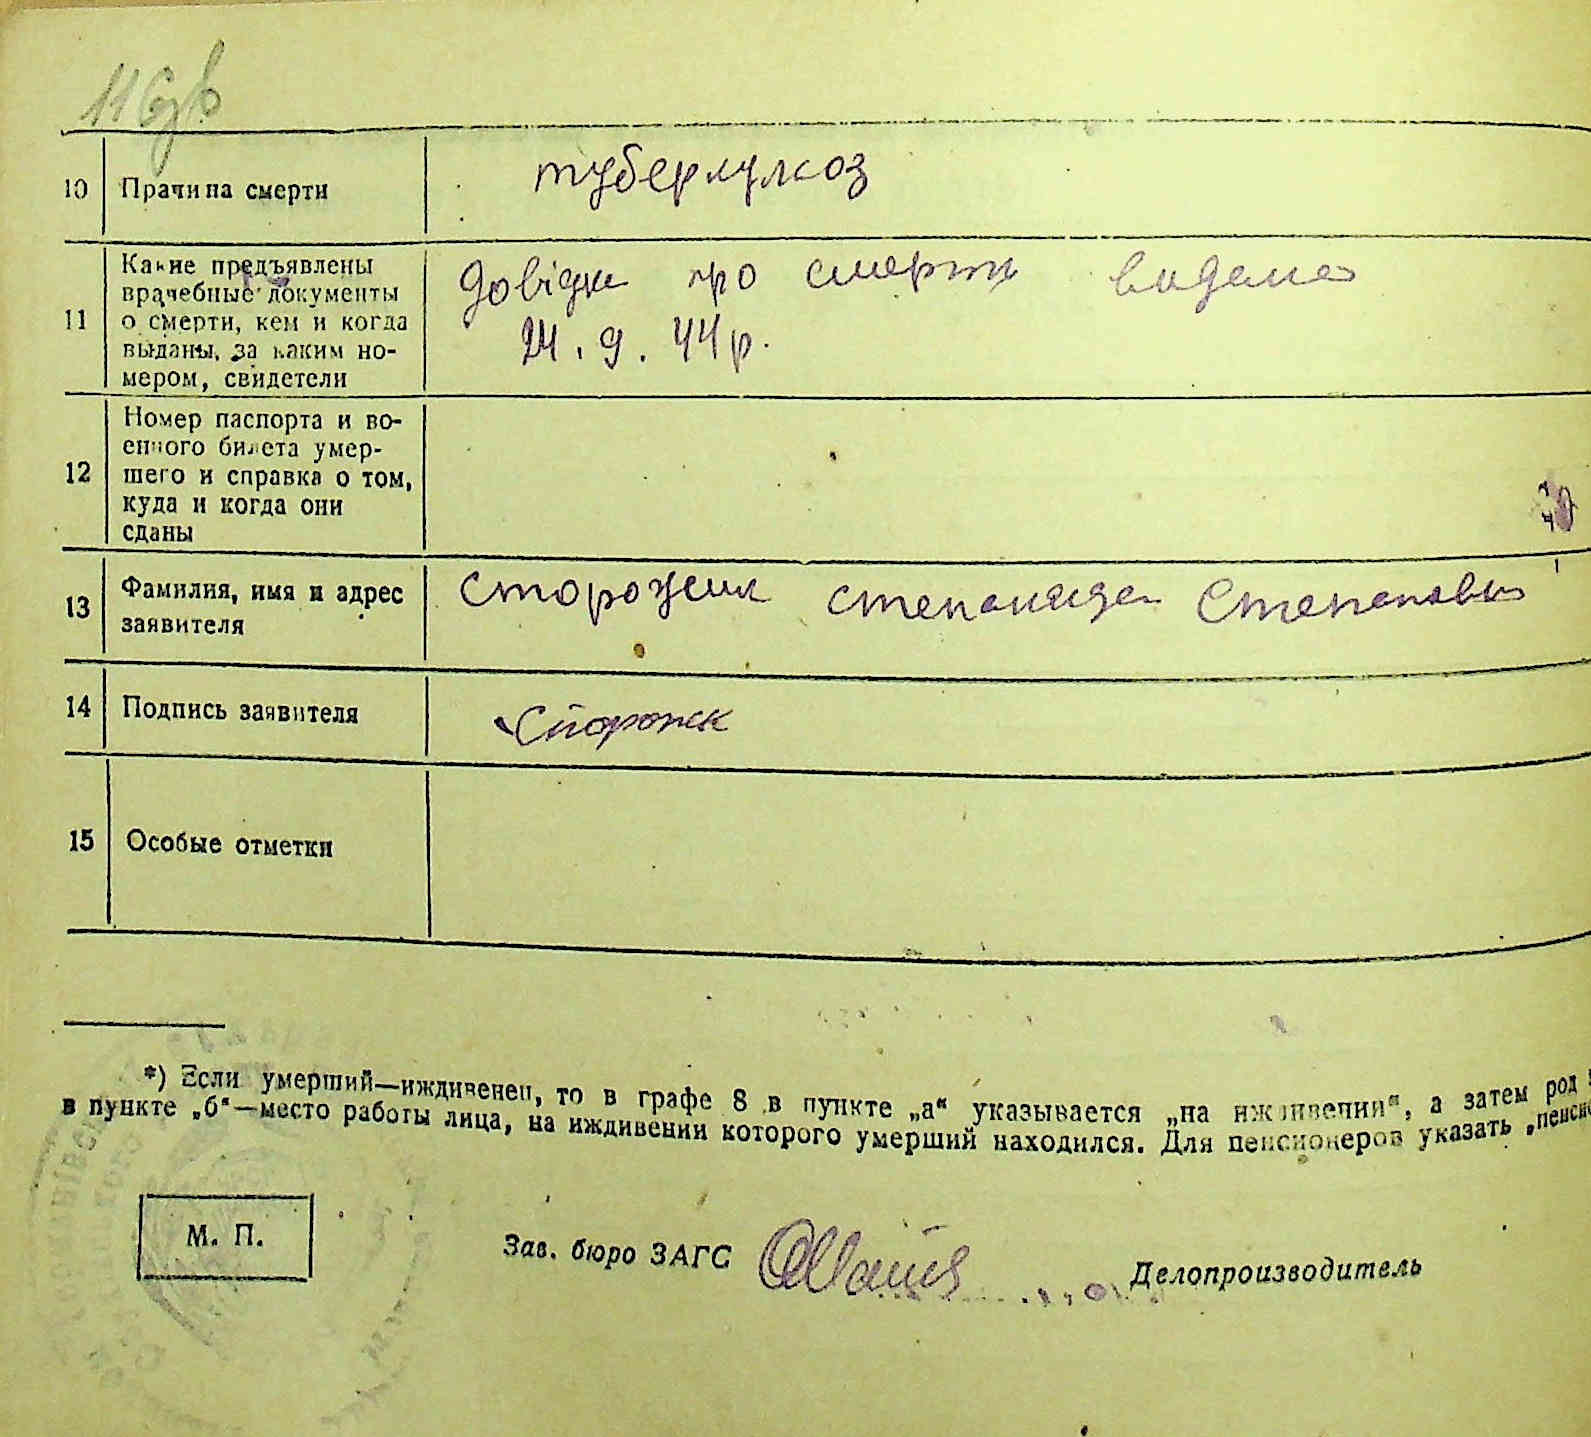 116
10 Прачина смерти туберкулкоз
11 Какие предъявлены
врачебные документы
о смерти, кем и когда
выданы, за каким но-
мером, свидетели
Довідка про смерть видана
24. 9. 44 р.
12 Номер паспорта и во-
енного билета умер-
шего и справка о том,
куда и когда они
сданы
13 Фамилия, имя и адрес
заявителя
Сторожук Степанида Степановн
14 Подпись заявителя Сторожк
15 Особые отметки
*) Если умерший—иждивенец, то в графе 8 в пункте „а“ указывается „на иждивении“, а затем род
в пункте „б“—место работы лица, на иждивении которого умерший находился. Для пенсионеров указать „пенсио
М. П.
Зав. бюро ЗАГС
Делопроизводитель